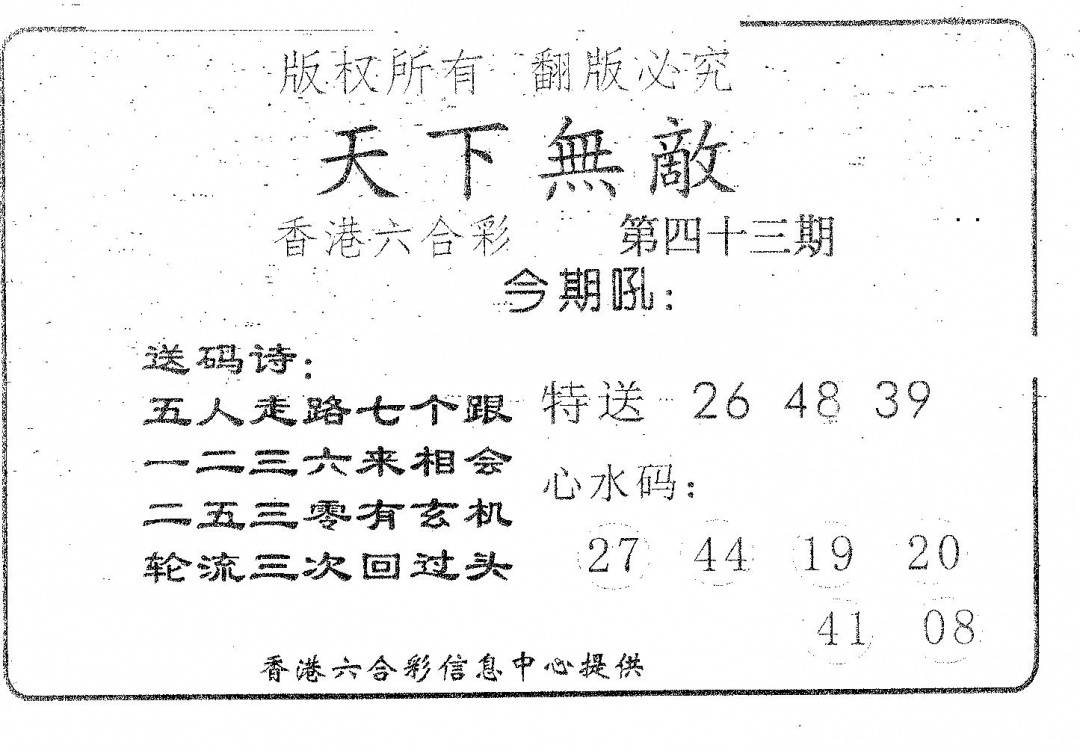 版权所有 翻版必究
天下無敵
香港六合彩 第四十三期
今期吼：
送码诗：
五人走路七个跟
一二三六来相会
二五三零有玄机
轮流三次回过头
特送 26 48 39
心水码：
27 44 19 20
41 08
香港六合彩信息中心提供